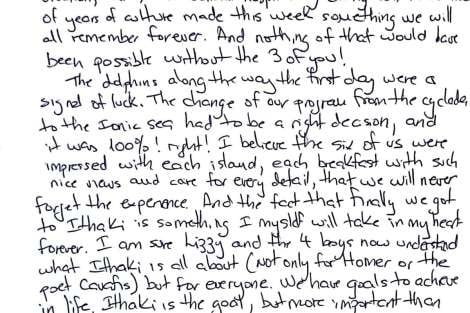 of years of culture made this week something we will
all remember forever. And nothing of that would have
been possible without the 3 of you!
The dolphins along the way the first day were a
signal of luck. The change of our program from the cyclada,
to the Ionic sea had to be a right decson, and
it was 100%! right! I believe the six of us were
impressed with each island, each breakfast with such
nice views and care for every detail, that we will never
forget the experence. And the fact that finally we got
to Ithaki is something I myself will take in my heart
forever. I am sure Lizzy and the 4 boys now understand
what Ithaki is all about (not only for Homer or the
poet Cavafis) but for everyone. We have goals to achieve
in life. Ithaki is the goal, but more important than